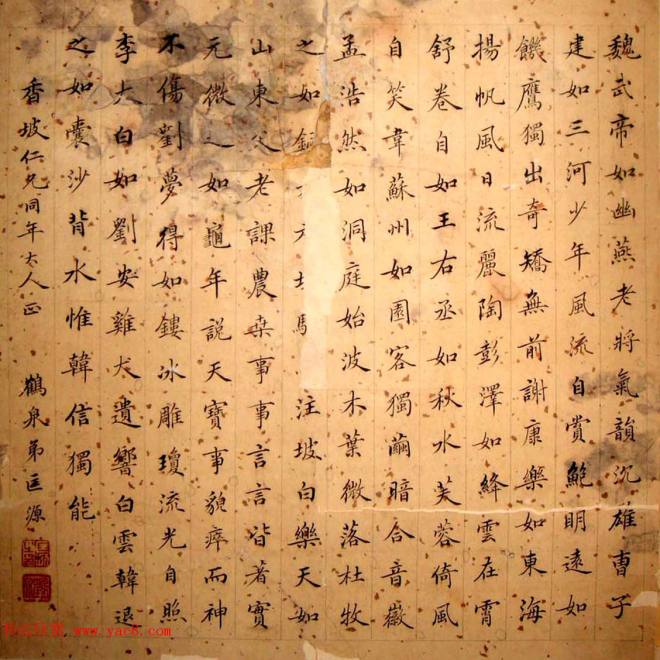 魏武帝如幽燕老將氣韻沉雄曹子
建如三河少年風流自賞鮑明遠如
饑鷹獨出奇矯無前謝康樂如東海
揚帆風日流麗陶彭澤如絳雲在霄
舒卷自如王右丞如秋水芙蓉倚風
自笑韋蘇州如園客獨繭暗合音徽
孟浩然如洞庭始波木葉微落杜牧
之如注坡白樂天如
山東父老課農桑事事言言皆著實
元微之如龜年說天寶事貌瘁而神
不傷劉夢得如鏤冰雕瓊流光自照
李太白如劉安雞犬遺響白雲韓退
之如囊沙背水惟韓信獨能
香坡仁兄同年大人正 鶴泉弟匡源
www.yac8.com